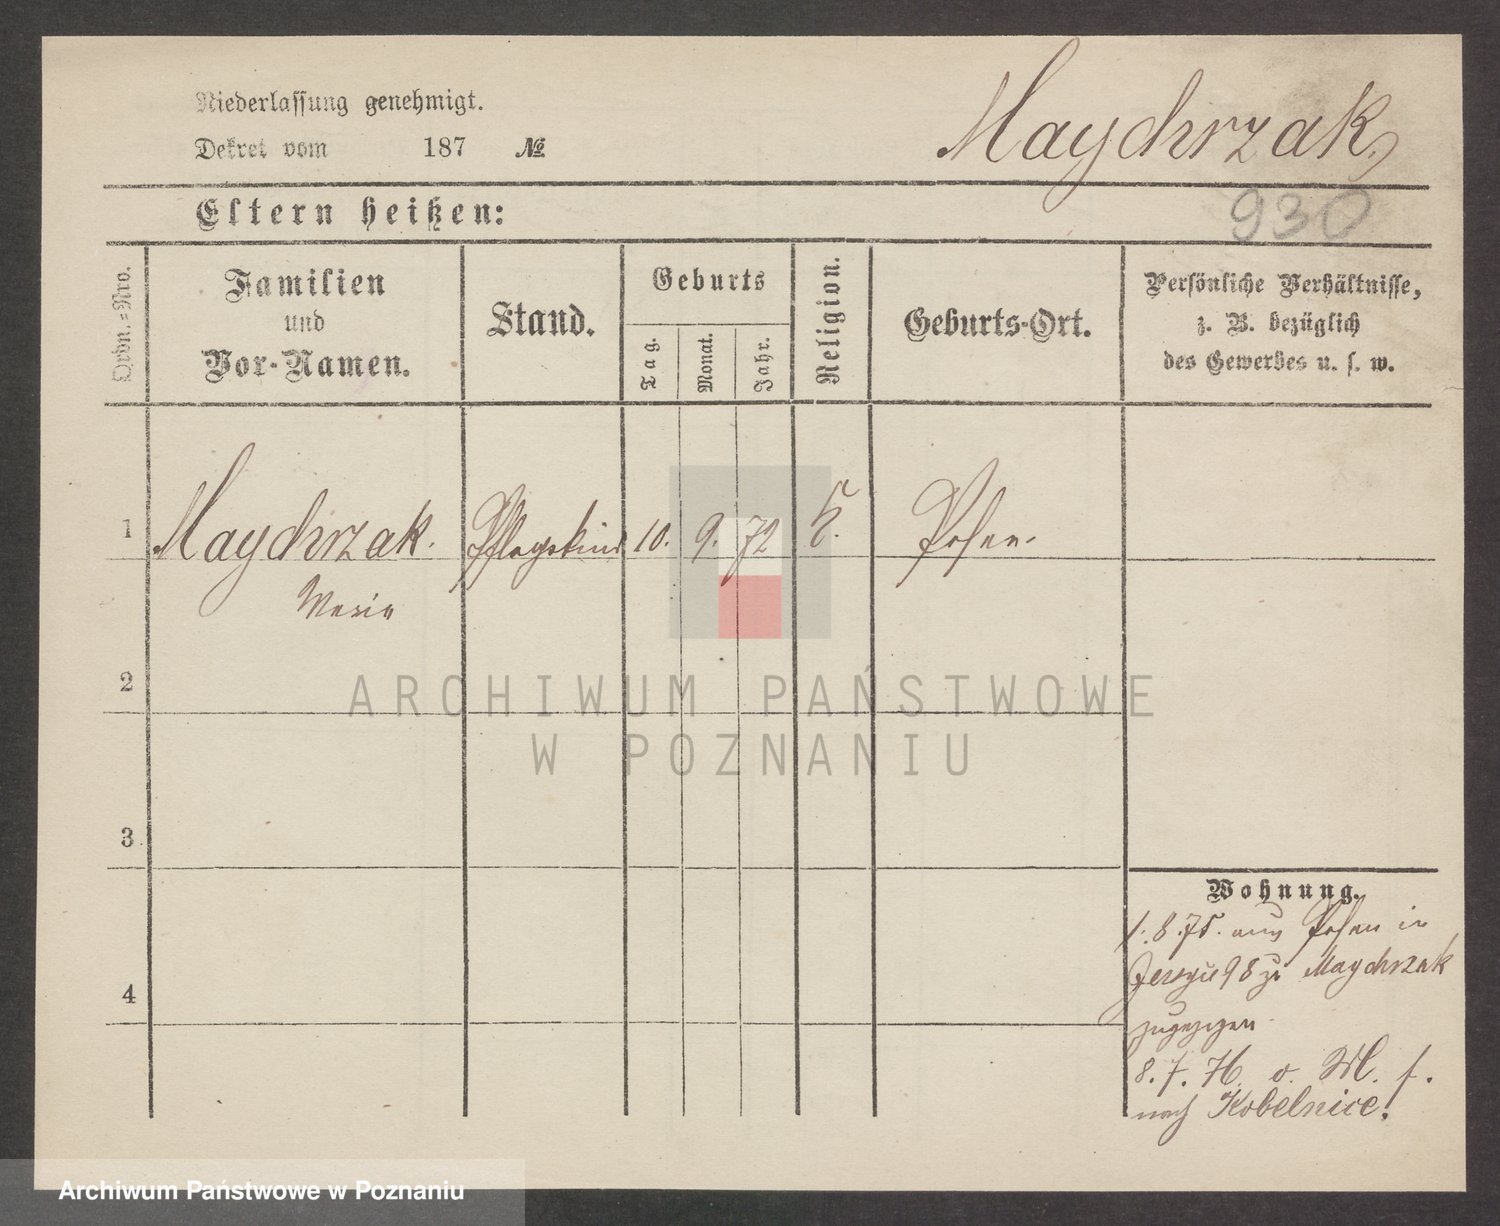 Niederlassung genehmigt.
Dekret vom 187 №
Maychrzak.
Eltern heißen:
930
Ordn.-Nro.
Familien
und
Vor-Namen.
Stand.
Geburts
Tag.
Monat.
Jahr.
Religion.
Geburts-Ort.
Persönliche Verhältnisse,
z. B. bezüglich
des Gewerbes u. s. w.
1 Maychrzak. Pflegekind 10. 9. 72 k. Posen.
Maria
2
ARCHIWUM PAŃSTWOWE
W POZNANIU
3
Wohnung.
1. 8. 75. aus Posen in
98 zu Maychrzak
zugezogen
4
8. 7. 76
nach Kobelnice!
Archiwum Państwowe w Poznaniu